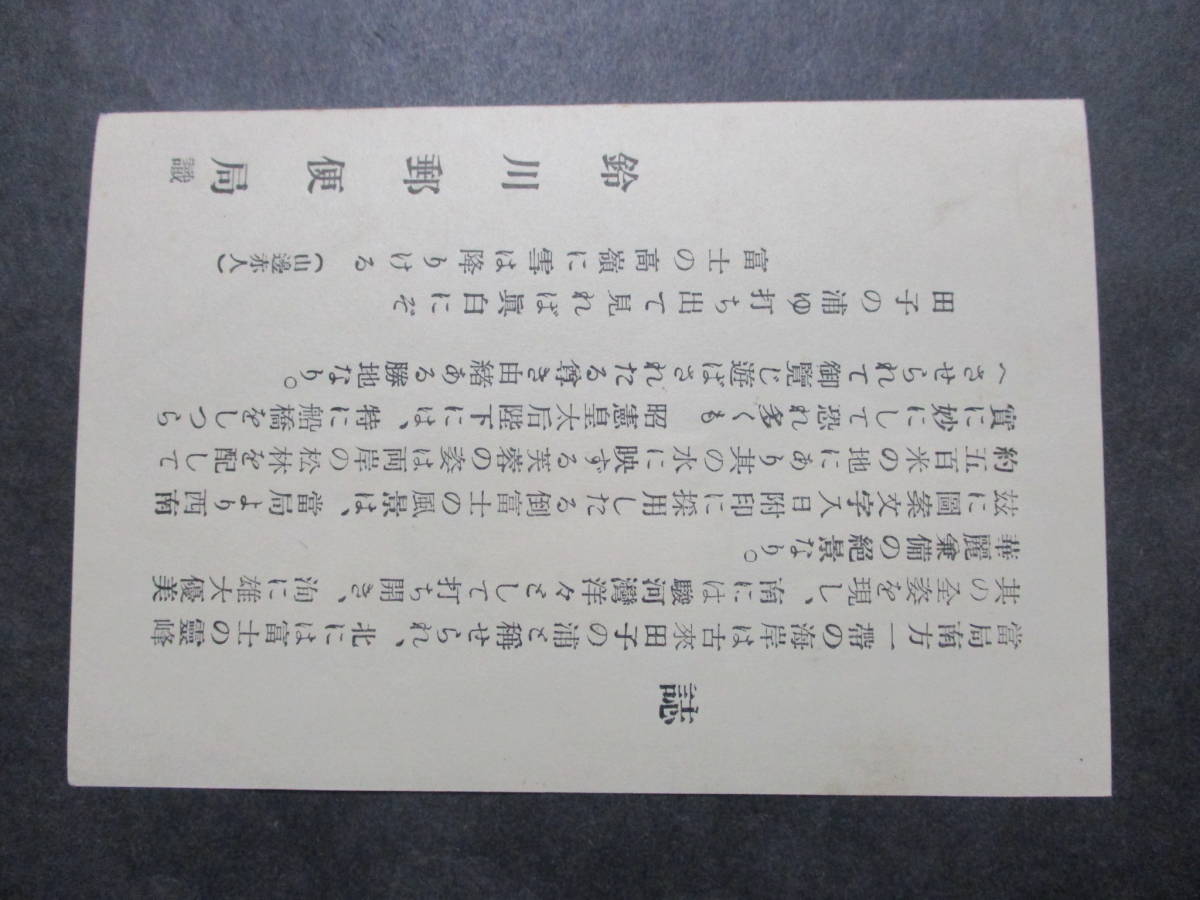 誌
當局南方一帶の海岸は古來田子の浦と稱せられ、北には富士の靈峰
其の全姿を現し、南には駿河灣洋々として打ち開き、洵に雄大優美
華麗兼備の絶景なり。
玆に圖案文字入日附印に採用したる倒富士の風景は、當局より西南
約五百米の地にあり其の水に映ずる芙蓉の姿は両岸の松林を配して
實に妙にして恐れ多くも　昭憲皇太后陛下には、特に船橋をしつら
へさせられて御覽じ遊ばされたる尊き由緒ある勝地なり。
田子の浦ゆ打ち出て見れば眞白にぞ
富士の高嶺に雪は降りける（山邊赤人）
鈴川郵便局識